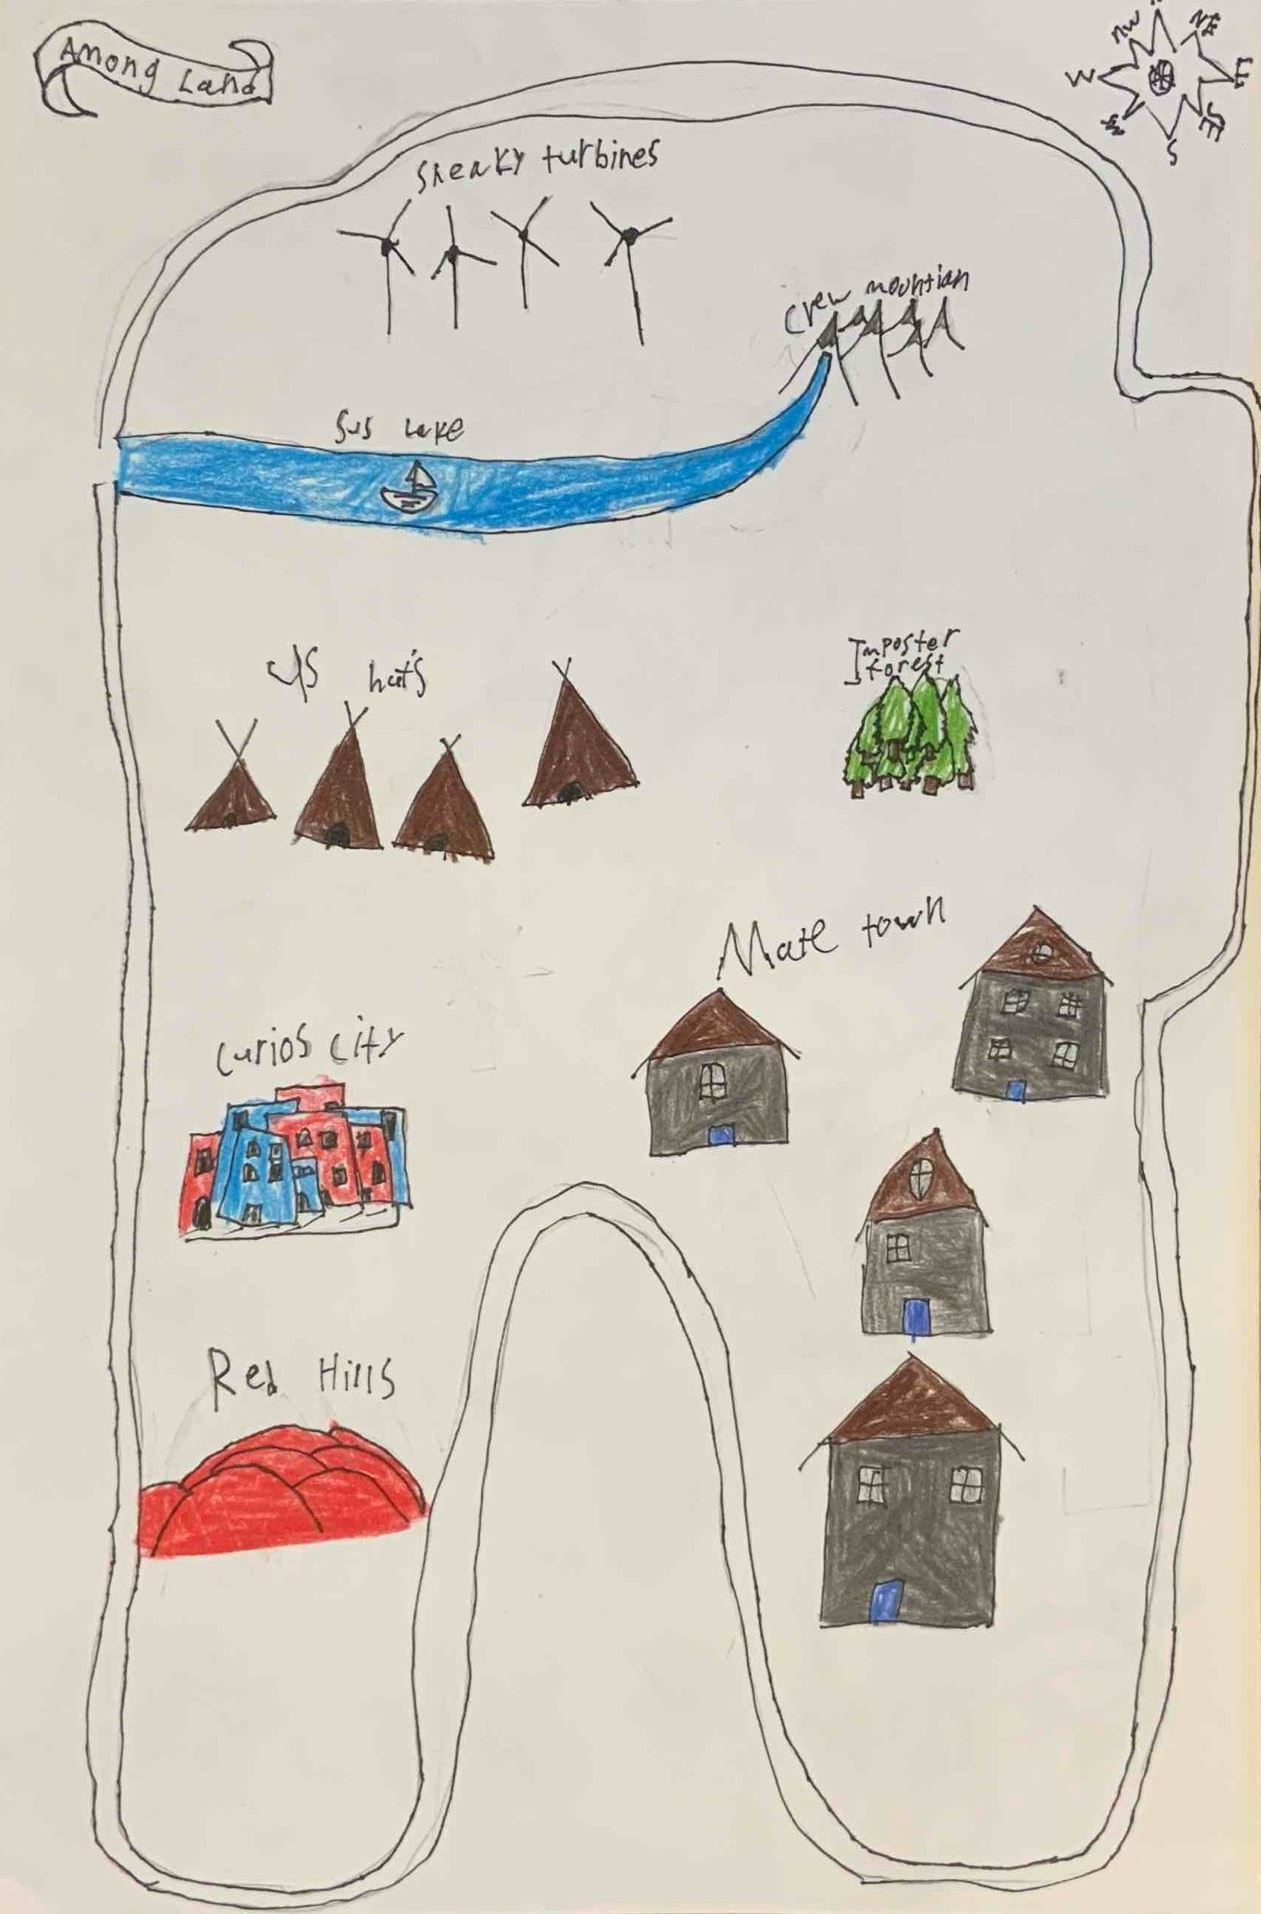 Among Land
N
NW
NE
W
E
SE
S
sneaky turbines
Crew mountian
sus Lake
us hut's
Imposter
forest
Mate town
Curios City
Red Hills